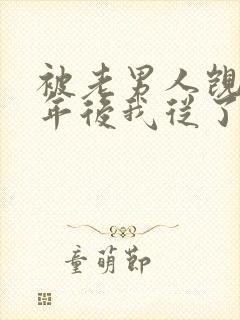 被老男人覬
年後我從了
童萌節